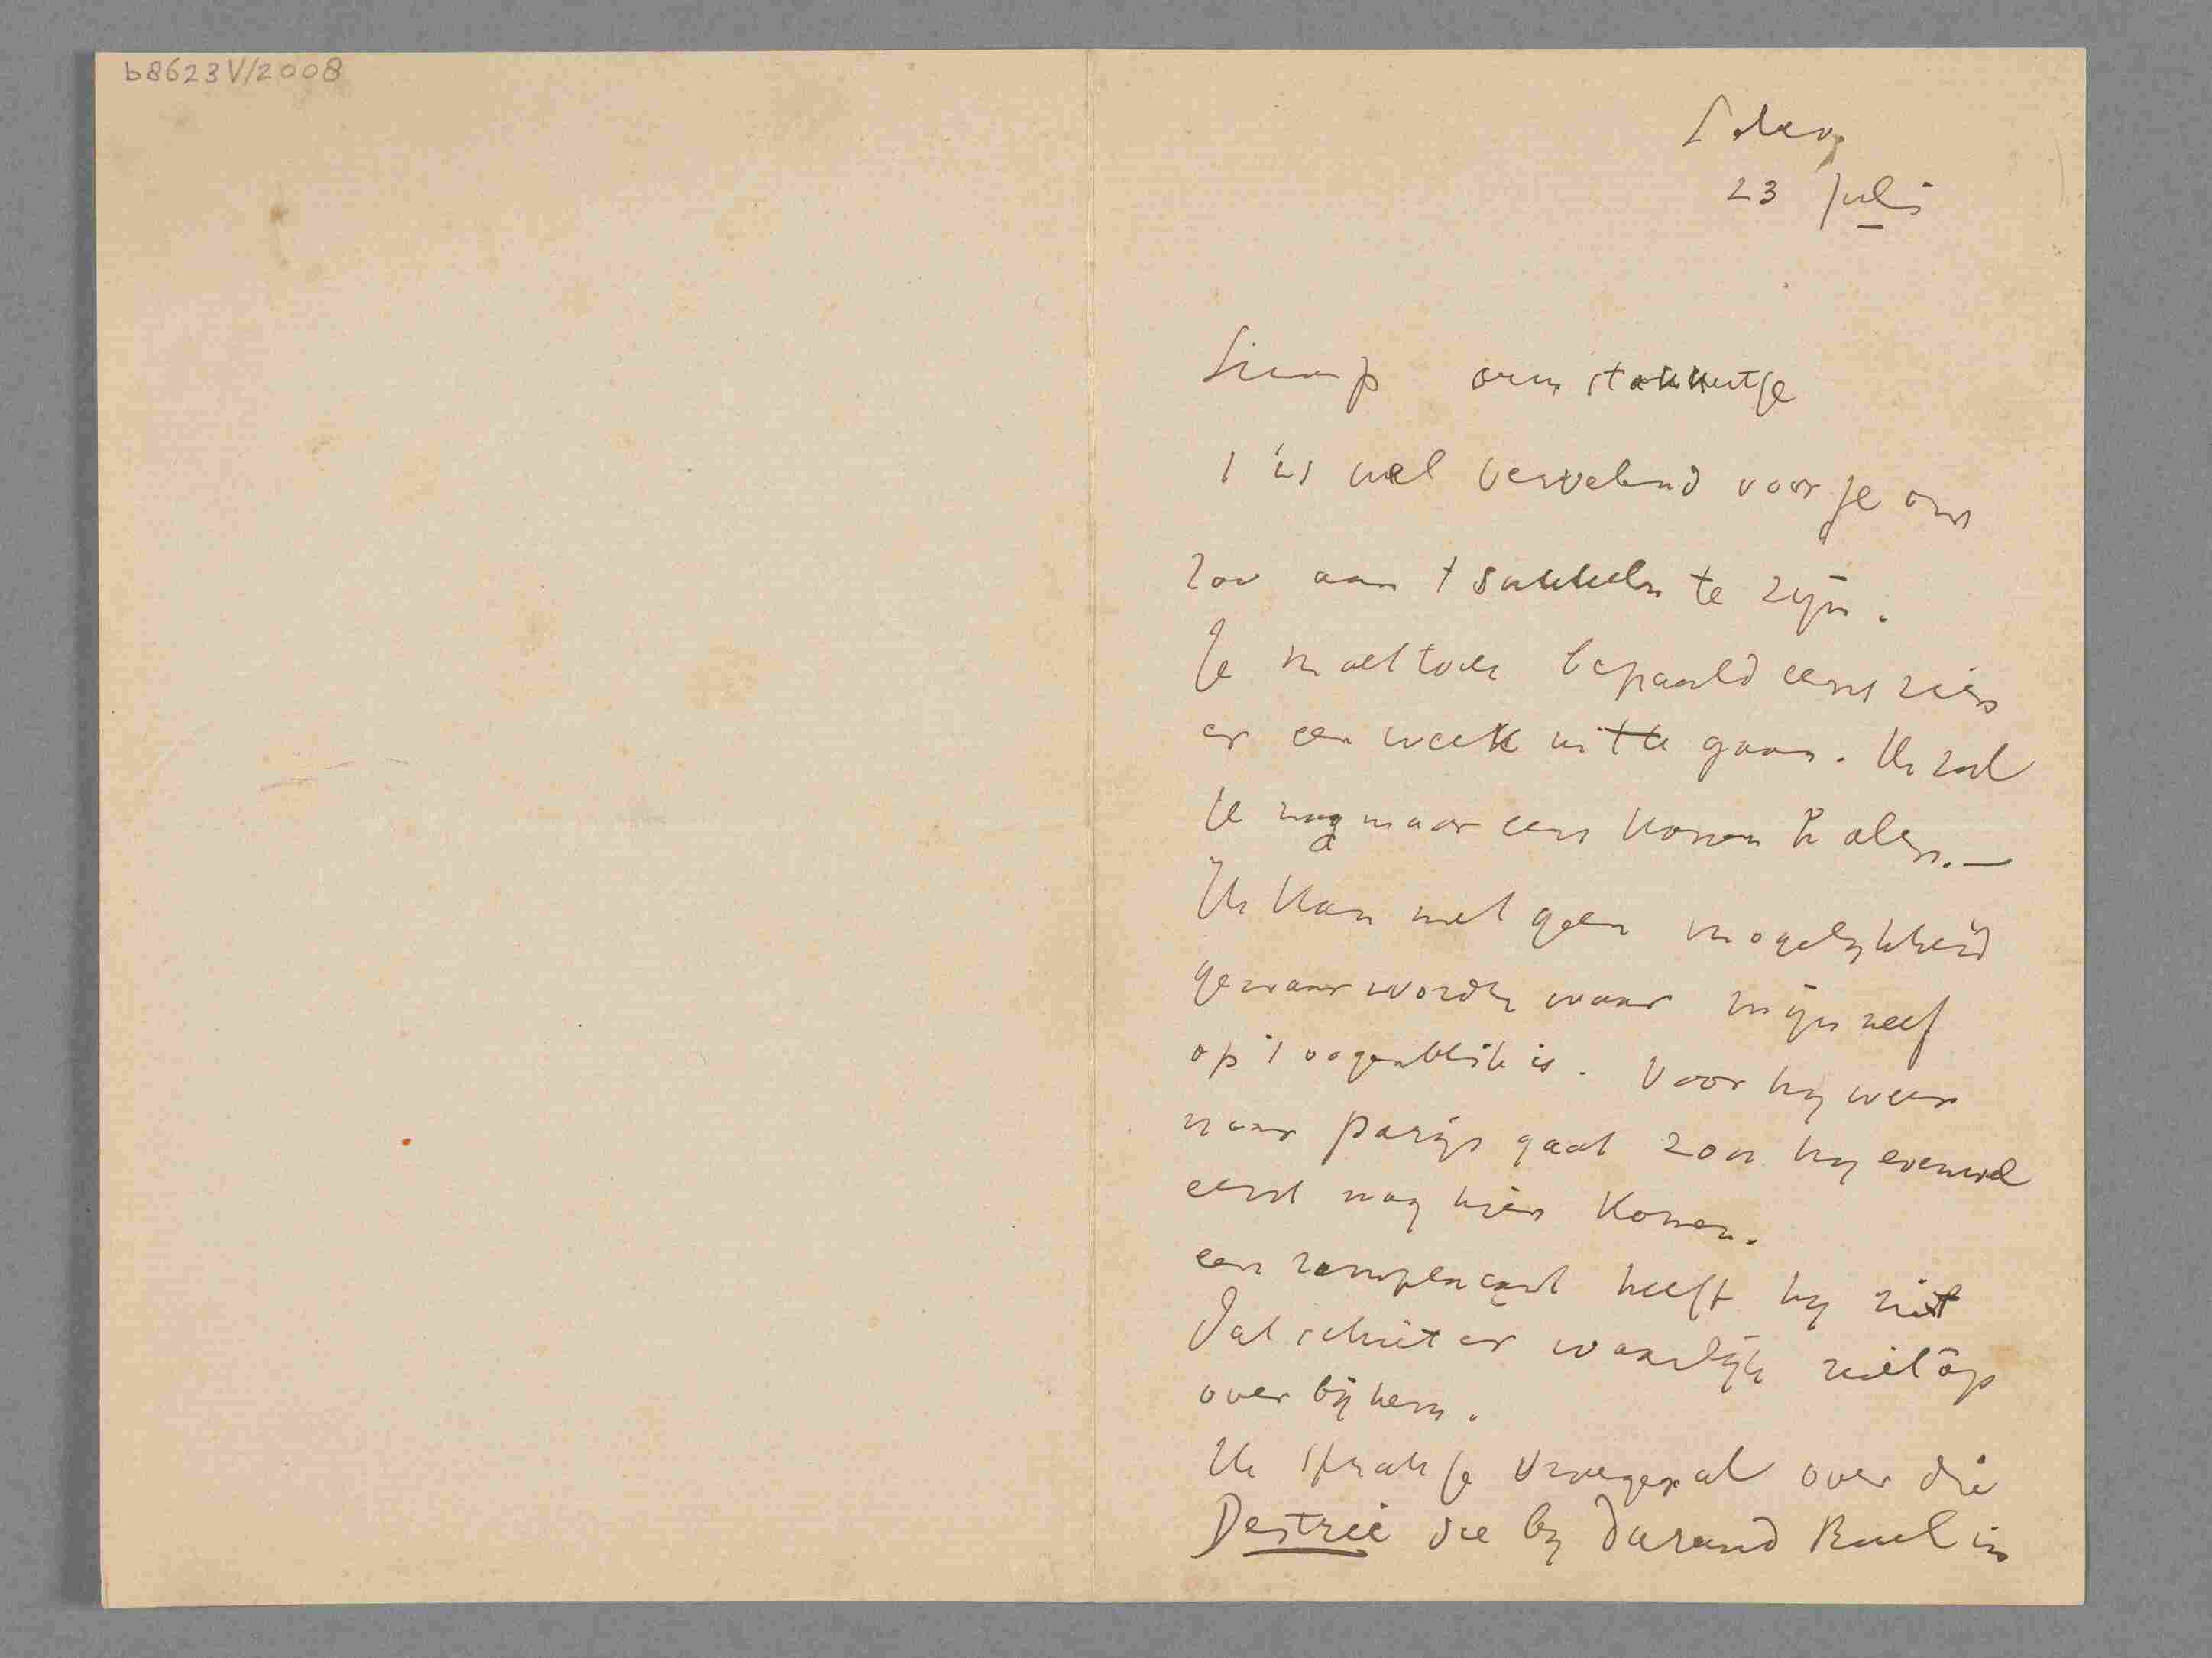 b8623 V/2008
23 Juli
arm stakkertje
't is wel vervelend voor je om
zoo aan 't sukkelen te zijn.
Je moet toch bepaald eens zien
er een week uit te gaan. Ik zal
je nog maar eens komen halen. —
Ik kan met geen mogelykheid
gewaar worden waar mijn neef
op 't oogenblik is. Voor hy weer
naar Parijs gaat zou hy evenwel
eerst nog hier komen.
een remplaçant heeft hy niet
Dat schiet er waarlijk niet op
over bij hem.
Ik sprak je vroeger al over die
Destrée die by Durand Ruel is